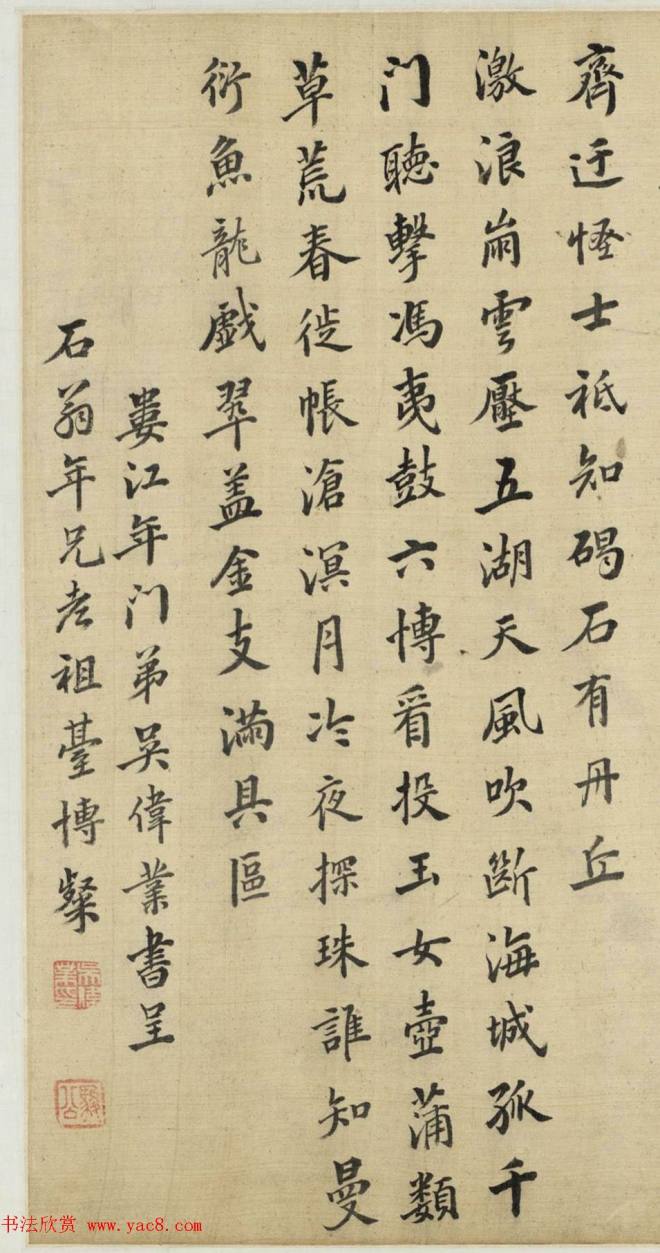 齊迂怪士祗知碣石有丹丘
激浪崩雲壓五湖天風吹斷海城孤千
门聽擊馮夷鼓六博看投玉女壺蒲類
草荒春徙帳滄溟月冷夜探珠誰知曼
衍魚龍戲翠盖金支滿具區
婁江年门弟吳偉業書呈
石翁年兄老祖臺博粲
吳偉業印
駿公
书法欣赏 www.yac8.com